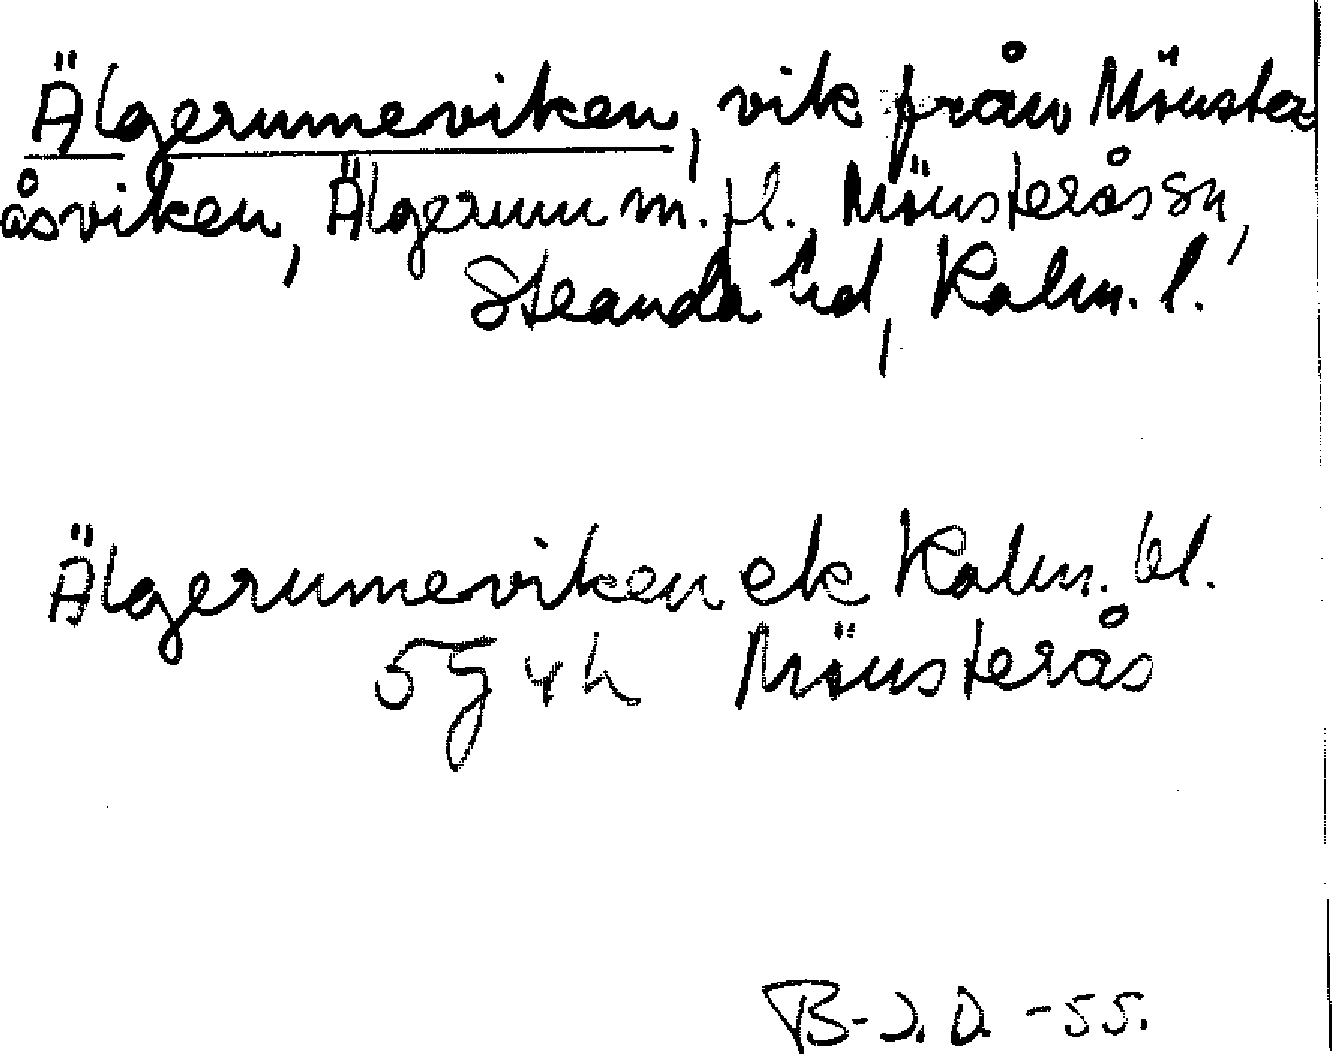 Älgerumeviken, vik från Mönster
åsviken, Älgerum m.fl. Mönsterås sn,
Stranda hd, Kalm. l.
Älgerumeviken ek Kalm. bl.
5G 4h Mönsterås
B-J.D. -55.